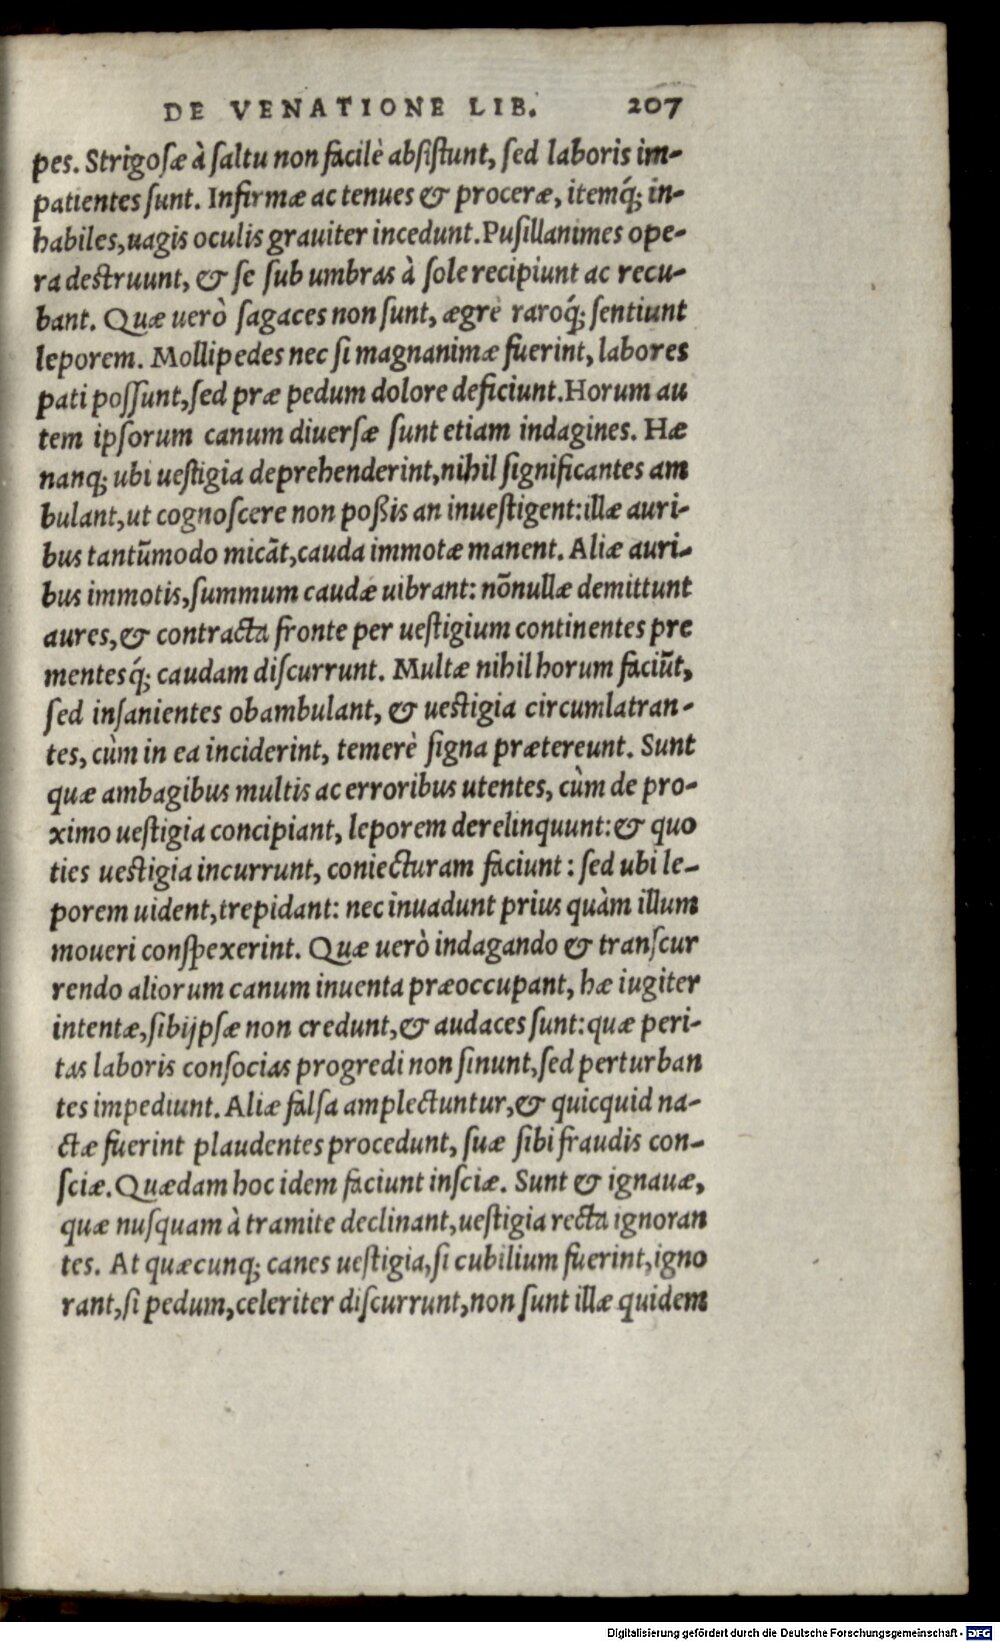 DE VENATIONE LIB. 207
pes. Strigosæ à saltu non facilè absistunt, sed laboris im-
patientes sunt. Infirmæ ac tenues & proceræ, itemq́; in-
habiles, uagis oculis grauiter incedunt. Pusillanimes ope-
ra destruunt, & se sub umbras à sole recipiunt ac recu-
bant. Quæ uerò sagaces non sunt, ægrè raroq́; sentiunt
leporem. Mollipedes nec si magnanimæ fuerint, labores
pati possunt, sed præ pedum dolore deficiunt. Horum au
tem ipsorum canum diuersæ sunt etiam indagines. Hæ
nanq; ubi uestigia deprehenderint, nihil significantes am
bulant, ut cognoscere non poßis an inuestigent: illæ auri-
bus tantũmodo micãt, cauda immotæ manent. Aliæ auri-
bus immotis, summum caudæ uibrant: nõnullæ demittunt
aures, & contracta fronte per uestigium continentes pre
mentesq́; caudam discurrunt. Multæ nihil horum faciũt,
sed insanientes obambulant, & uestigia circumlatran-
tes, cùm in ea inciderint, temerè signa prætereunt. Sunt
quæ ambagibus multis ac erroribus utentes, cùm de pro-
ximo uestigia concipiant, leporem derelinquunt: & quo
ties uestigia incurrunt, coniecturam faciunt: sed ubi le-
porem uident, trepidant: nec inuadunt prius quàm illum
moueri conspexerint. Quæ uerò indagando & transcur
rendo aliorum canum inuenta præoccupant, hæ iugiter
intentæ, sibijpsæ non credunt, & audaces sunt: quæ peri-
tas laboris consocias progredi non sinunt, sed perturban
tes impediunt. Aliæ falsa amplectuntur, & quicquid na-
ctæ fuerint plaudentes procedunt, suæ sibi fraudis con-
sciæ. Quædam hoc idem faciunt insciæ. Sunt & ignauæ,
quæ nusquam à tramite declinant, uestigia recta ignoran
tes. At quæcunq; canes uestigia, si cubilium fuerint, igno
rant, si pedum, celeriter discurrunt, non sunt illæ quidem
Digitalisierung gefördert durch die Deutsche Forschungsgemeinschaft - DFG